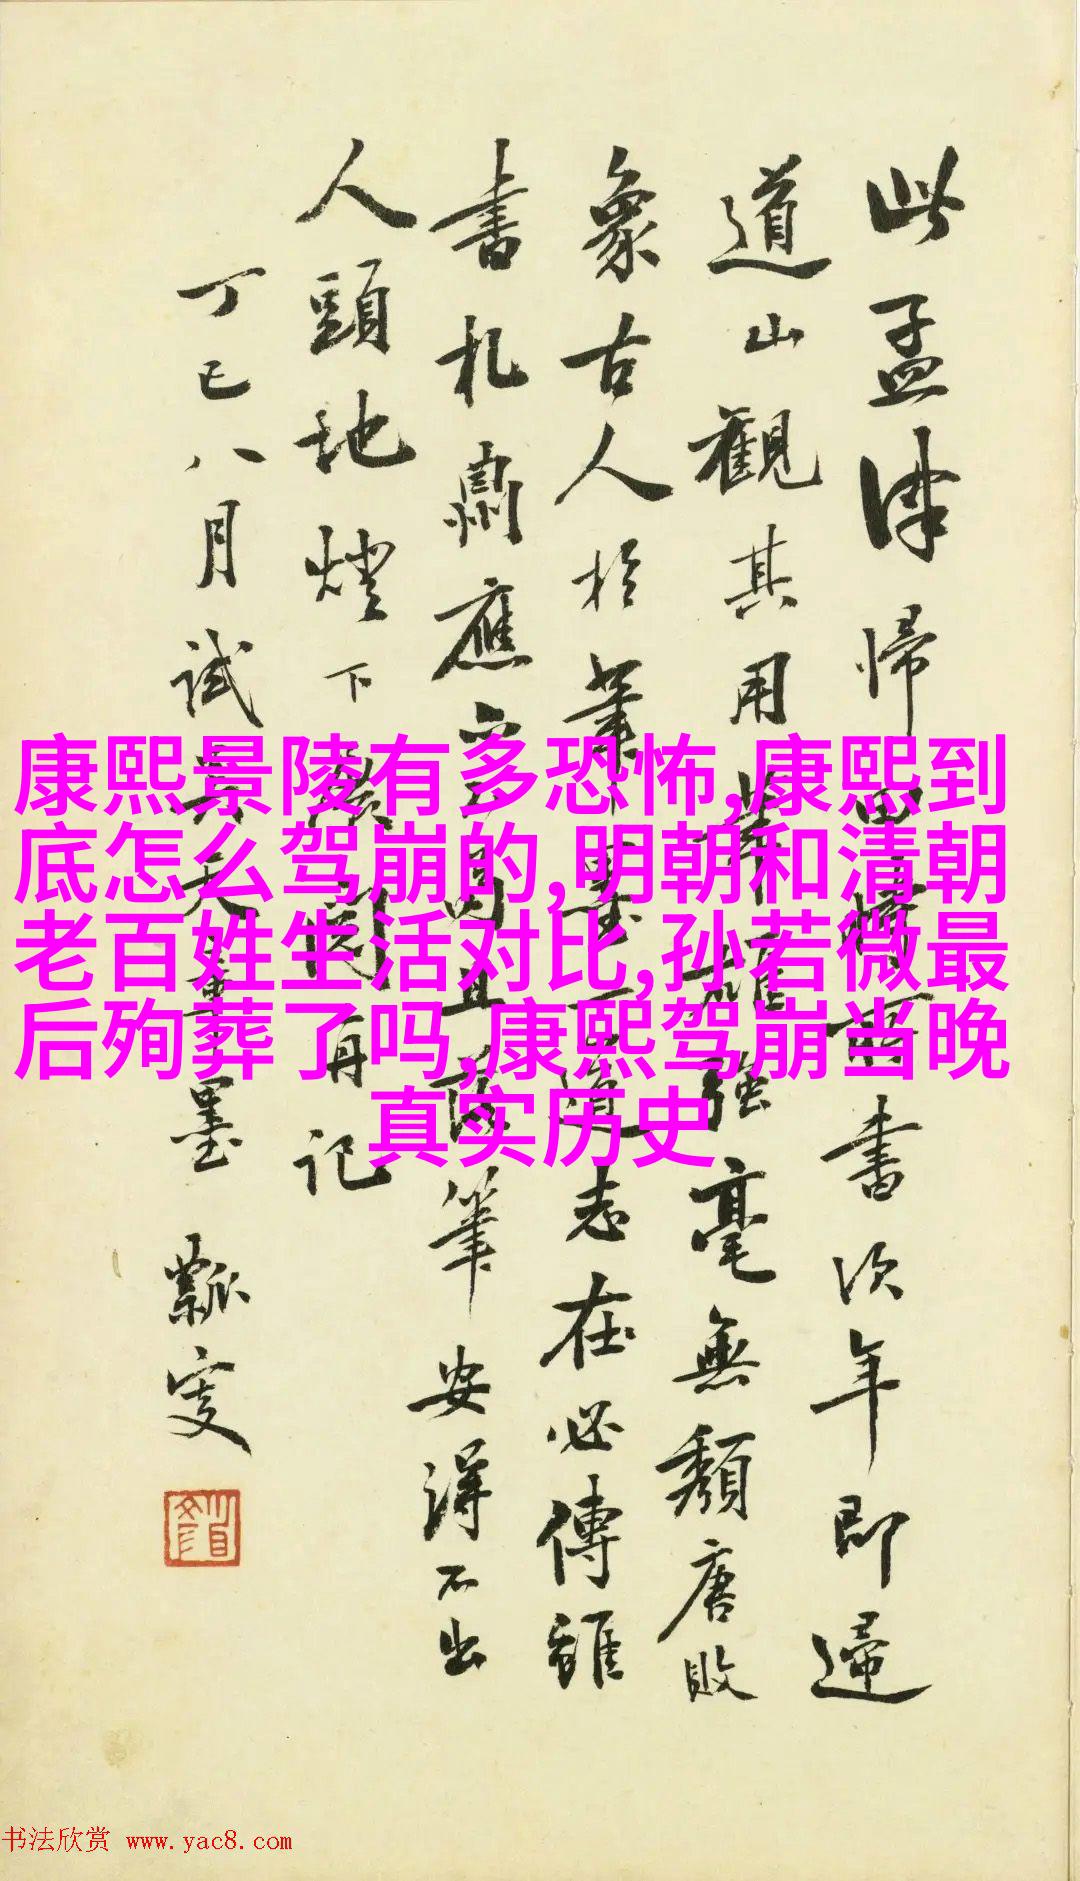 此孟津歸田後書次年即歸
道山觀其用筆雄強毫無頹唐敗
象古人於筆墨一道志在必傳雖
書札應且落筆安得不出
人頭地燈下閱再記
丁巳八月試天章墨 瓢叟
康熙景陵有多恐怖,康熙到
底怎么驾崩的,明朝和清朝
老百姓生活对比,孙若微最
后殉葬了吗,康熙驾崩当晚
真实历史
书法欣赏 www.yac8.com